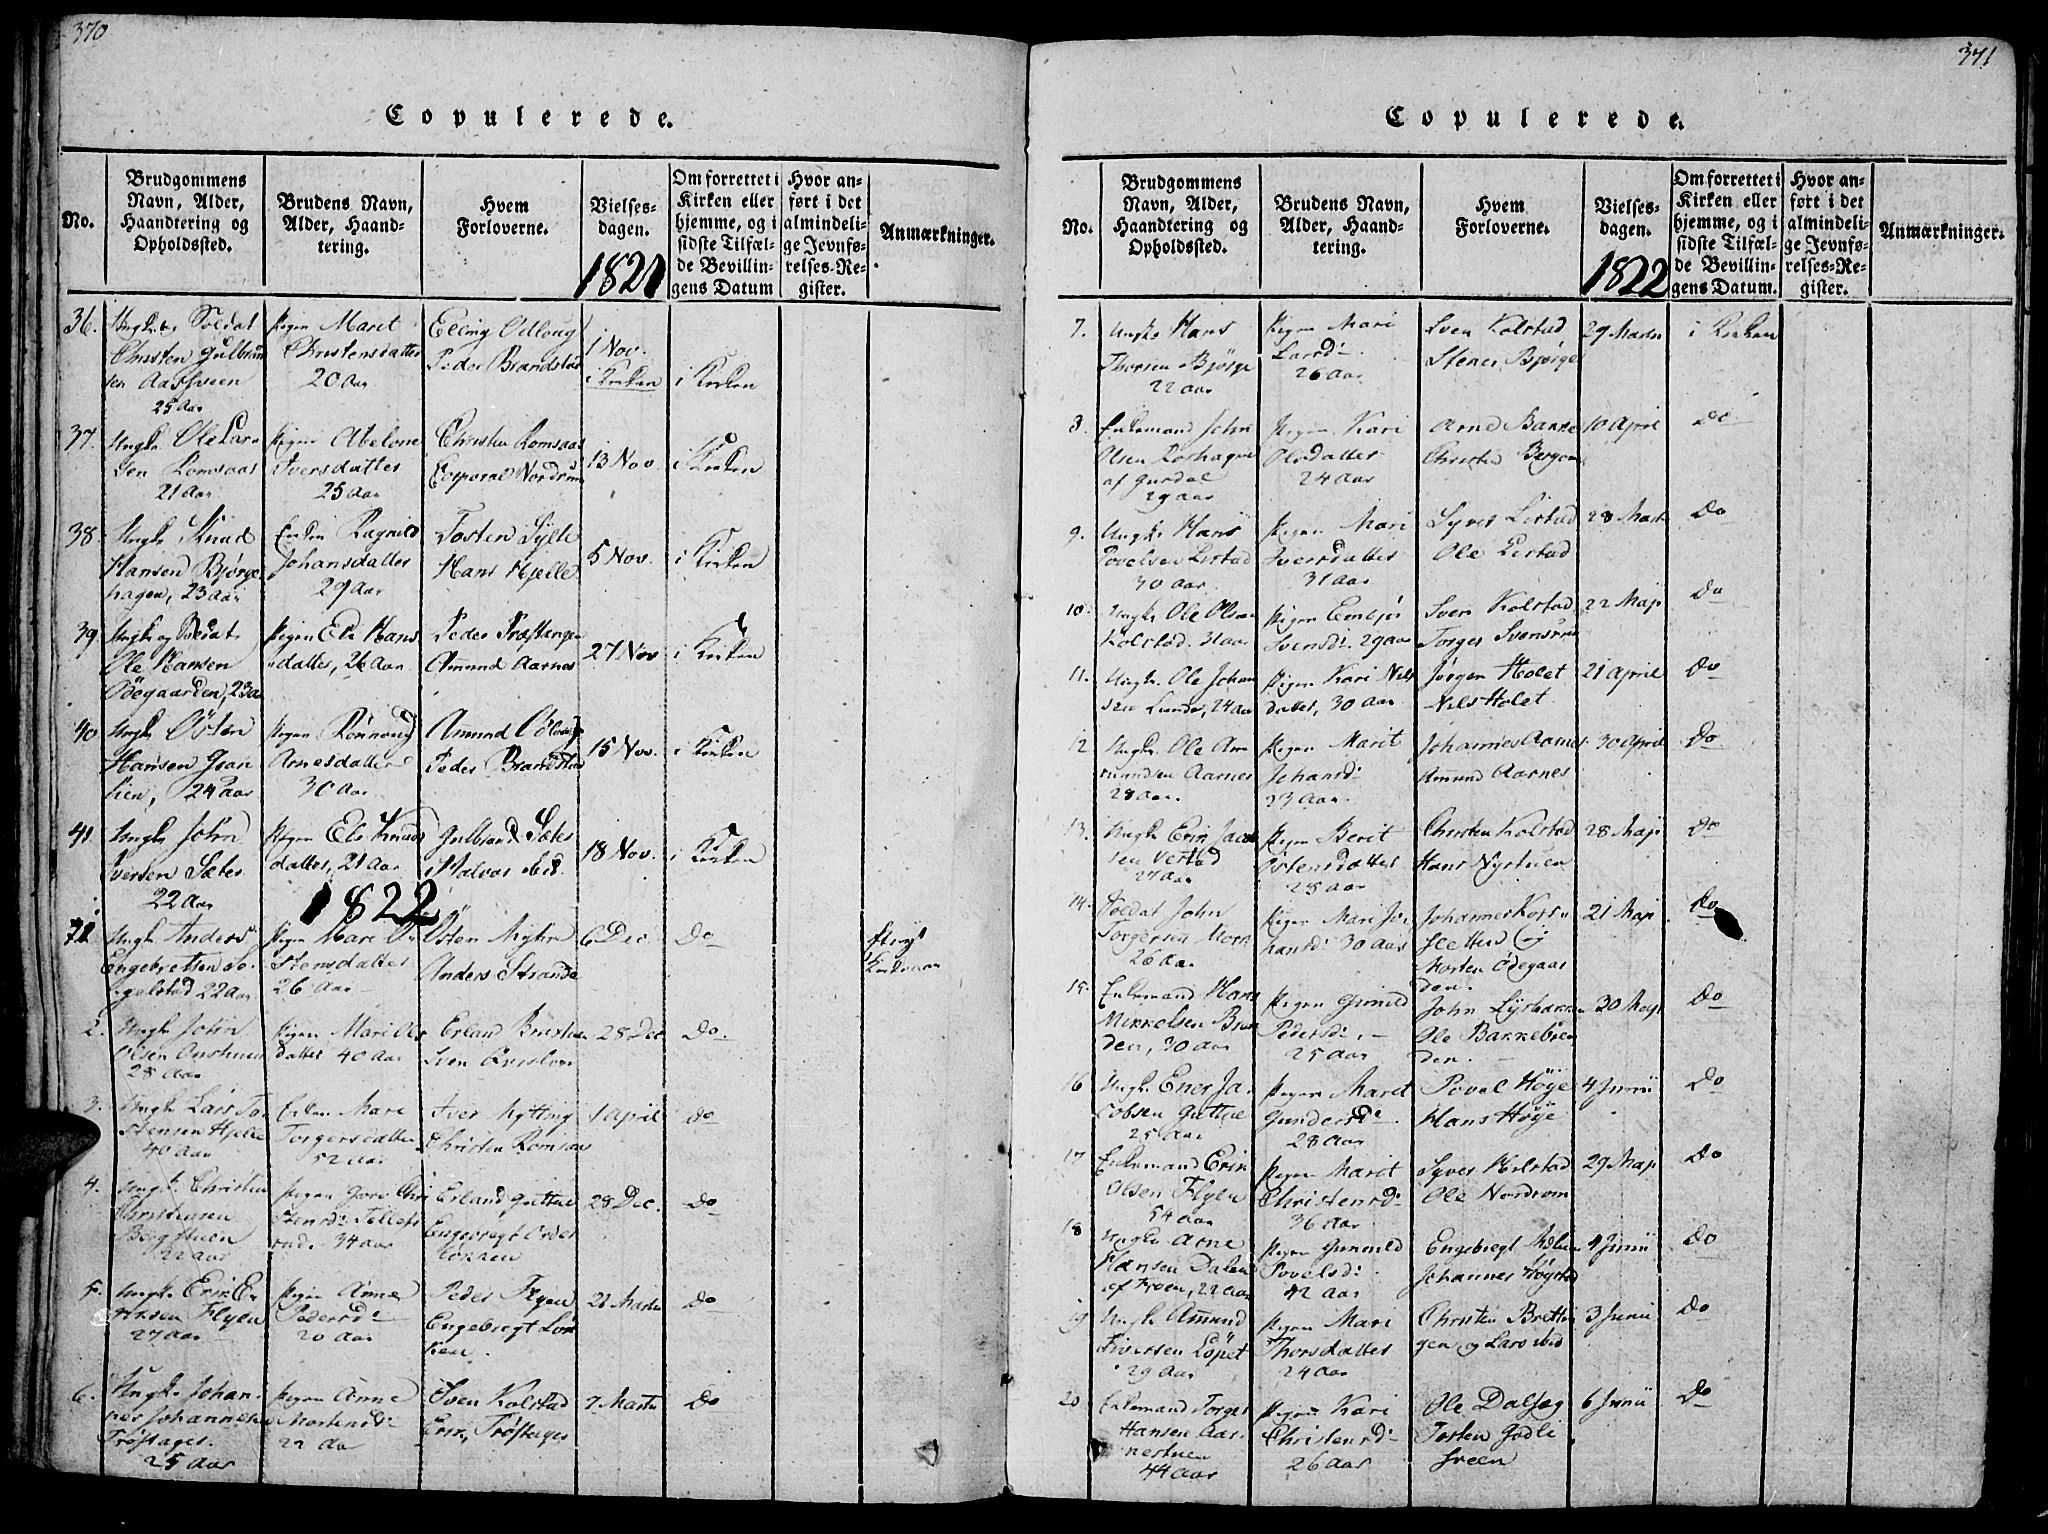 370
Copulerede.
No.
Brudgommens Navn, Alder, Haandtering og Opholdssted.
Brudens Navn, Alder, Haandtering.
Hvem Forloverne.
Vielsesdagen.
1821
Om forrettet i Kirken eller hjemme, og i sidste Tilfælde Bevillingens Datum
Hvor anført i det almindelige Jevnførelses-Register.
Anmærkninger.
36. Ungk. og Soldat Pigen Marit Eling Odloug 1 Nov.
Christen Gulbrand Christensdatter Peder Brandstad i Kirken i Kirken
sen 20 Aar
25 Aar
37. Ungk. Ole Lar Pigen Abelone Christen Romsaas 13 Nov. i Kirken
sen Romsaas Iversdatter Corporal Nordrum
21 Aar 25 Aar
38. Ungk. Knud Enken Ragnild Tosten Sylte 5 Nov. i Kirken
Hansen Bjørge Johansdatter Hans Hjelle
hagen, 23 aar 29 Aar
39 Ungk. og Soldat Pigen Eli Hans Peder Træstangen 27 Nov i Kirken
Ole Hansen datter, 26 Aar Amund Aarnes
Odegaarden, 23 a
40 Ungk. Østen Pigen Rønnoug Amund Odloug 15 Nov. i Kirken
Hansen Gran Arnesdatter Peder Brandstad
lien, 24 Aar 30 Aar
41 Ungk. John Pigen Eli Knuds Gulbrand Sætre 18 Nov. i Kirken
Iversen Sætre datter, 21 Aar Halvor ibid.
22 Aar
1822
Ungk. Anders Pigen Mari Østen Myhre 6 Dec. Do
Engebretsen stensdatter Anders Strande
gelstad 22 Aar 26 Aar
2. Ungk. John Pigen Mari Ols Erland 28 Dec Do.
Olsen datter 40 Aar Sven
28 Aar
3. Ungk. Lars To Enken Mari Iver Myttoug 1 April Do
stensen Hjelle Torgersdatter Christen Romsaas
40 Aar 52 Aar
4. Ungk. Christen Pigen Goro Chri Erland Guttue 28 Dec. Do
Christensen stensd: Engebregt
Bergstuen 34 Aar løkken
22 Aar
5. Ungk. Erik E Pigen Anne Peder Flyen 21 Martii Do
Flyen Pedersd: Engebregt
27 Aar 20 Aar
6. Ungk. Johan Pigen Anne Sven Kolstad 7 Martii Do
nes Johannesen Mortensd: Erik Trøstager
Trøstager. 22 Aar
25 Aar
371
Copulerede.
No.
Brudgommens Navn, Alder, Haandtering og Opholdssted.
Brudens Navn, Alder, Haandtering.
Hvem Forloverne.
Vielsesdagen.
1822
Om forrettet i Kirken eller hjemme, og i sidste Tilfælde Bevillingens Datum.
Hvor anført i det almindelige Jevnførelses-Register.
Anmærkninger.
7. Ungk. Hans Pigen Mari Sven Kolstad 29 Martii i Kirken
Thorsen Bjørge Larsd: Stener Bjørge
22 Aar 26 Aar
8. Enkemand John Pigen Kari Arne Bakke 10 April Do
Olsen Olsdatter Christen Bergom
af 24 Aar
29 aar
9. Ungk. Hans Pigen Mari Syver Listad 28 Marti Do
Povelsen Listad Iversdatter Ole Listad
30 Aar 31 Aar
10. Ungk. Ole Olsen Pigen Sven Kolstad 22 Maji Do
Kolstad. 31 aar Svensd: 29 aar Torger Svensrud
11. Ungk. Ole Johan Pigen Kari Nils Jørgen Holet 21 April Do
sen Lunde, 24 Aar datter, 30 Aar Nils Holet
12 Ungk. Ole Am Pigen Marit Johannes Aarnes 30 April Do
mundsen Aarnes Johansd: Amund Aarnes
28 Aar. 23 Aar.
13. Ungk. Erik Jacob Pigen Berit Christen Kolstad 28 Maji Do
sen Verstad Østensdatter Hans Nystuen
27 Aar 28 Aar
14. Soldat John Pigen Mari Jo Johannes Kors 21 Maji Do
Torgersen hansd: 30 Aar sletten og
26 Aar Morten Ødegaar
den.
15. Enkemand Hans Pigen Gunild John 30 Maji Do
Mikkelsen Pedersd: Ole
den, 30 Aar 25 Aar den.
16 Ungk. Ener Ja Pigen Marit Povel Høye 4 Junii Do
cobsen Guttue Gundersd: Hans Høye
25 Aar 28 Aar
17 Enkemand Erik Pigen Marit Syver Kolstad 29 Maji Do
Olsen Flyen Christensd: Ole Nordrom
54 Aar 36 Aar
18 Ungk. Arne Pigen Gunild Engebregt 4 Junii Do
Hansen Dalen Povelsd: Johannes Høystad
af Froen, 22 Aar 42 Aar
19 Ungk. Amund Pigen Mari Christen 3 Junii Do
Iversen Løpet Thorsdatter gen og Lars ibid
29 Aar 24 Aar
20 Enkemand Torger Pigen Kari Ole Dalseg 6 Junii Do
Hansen Aar Christensd: Tosten Godli
nestuen 26 Aar sveen
44 Aar